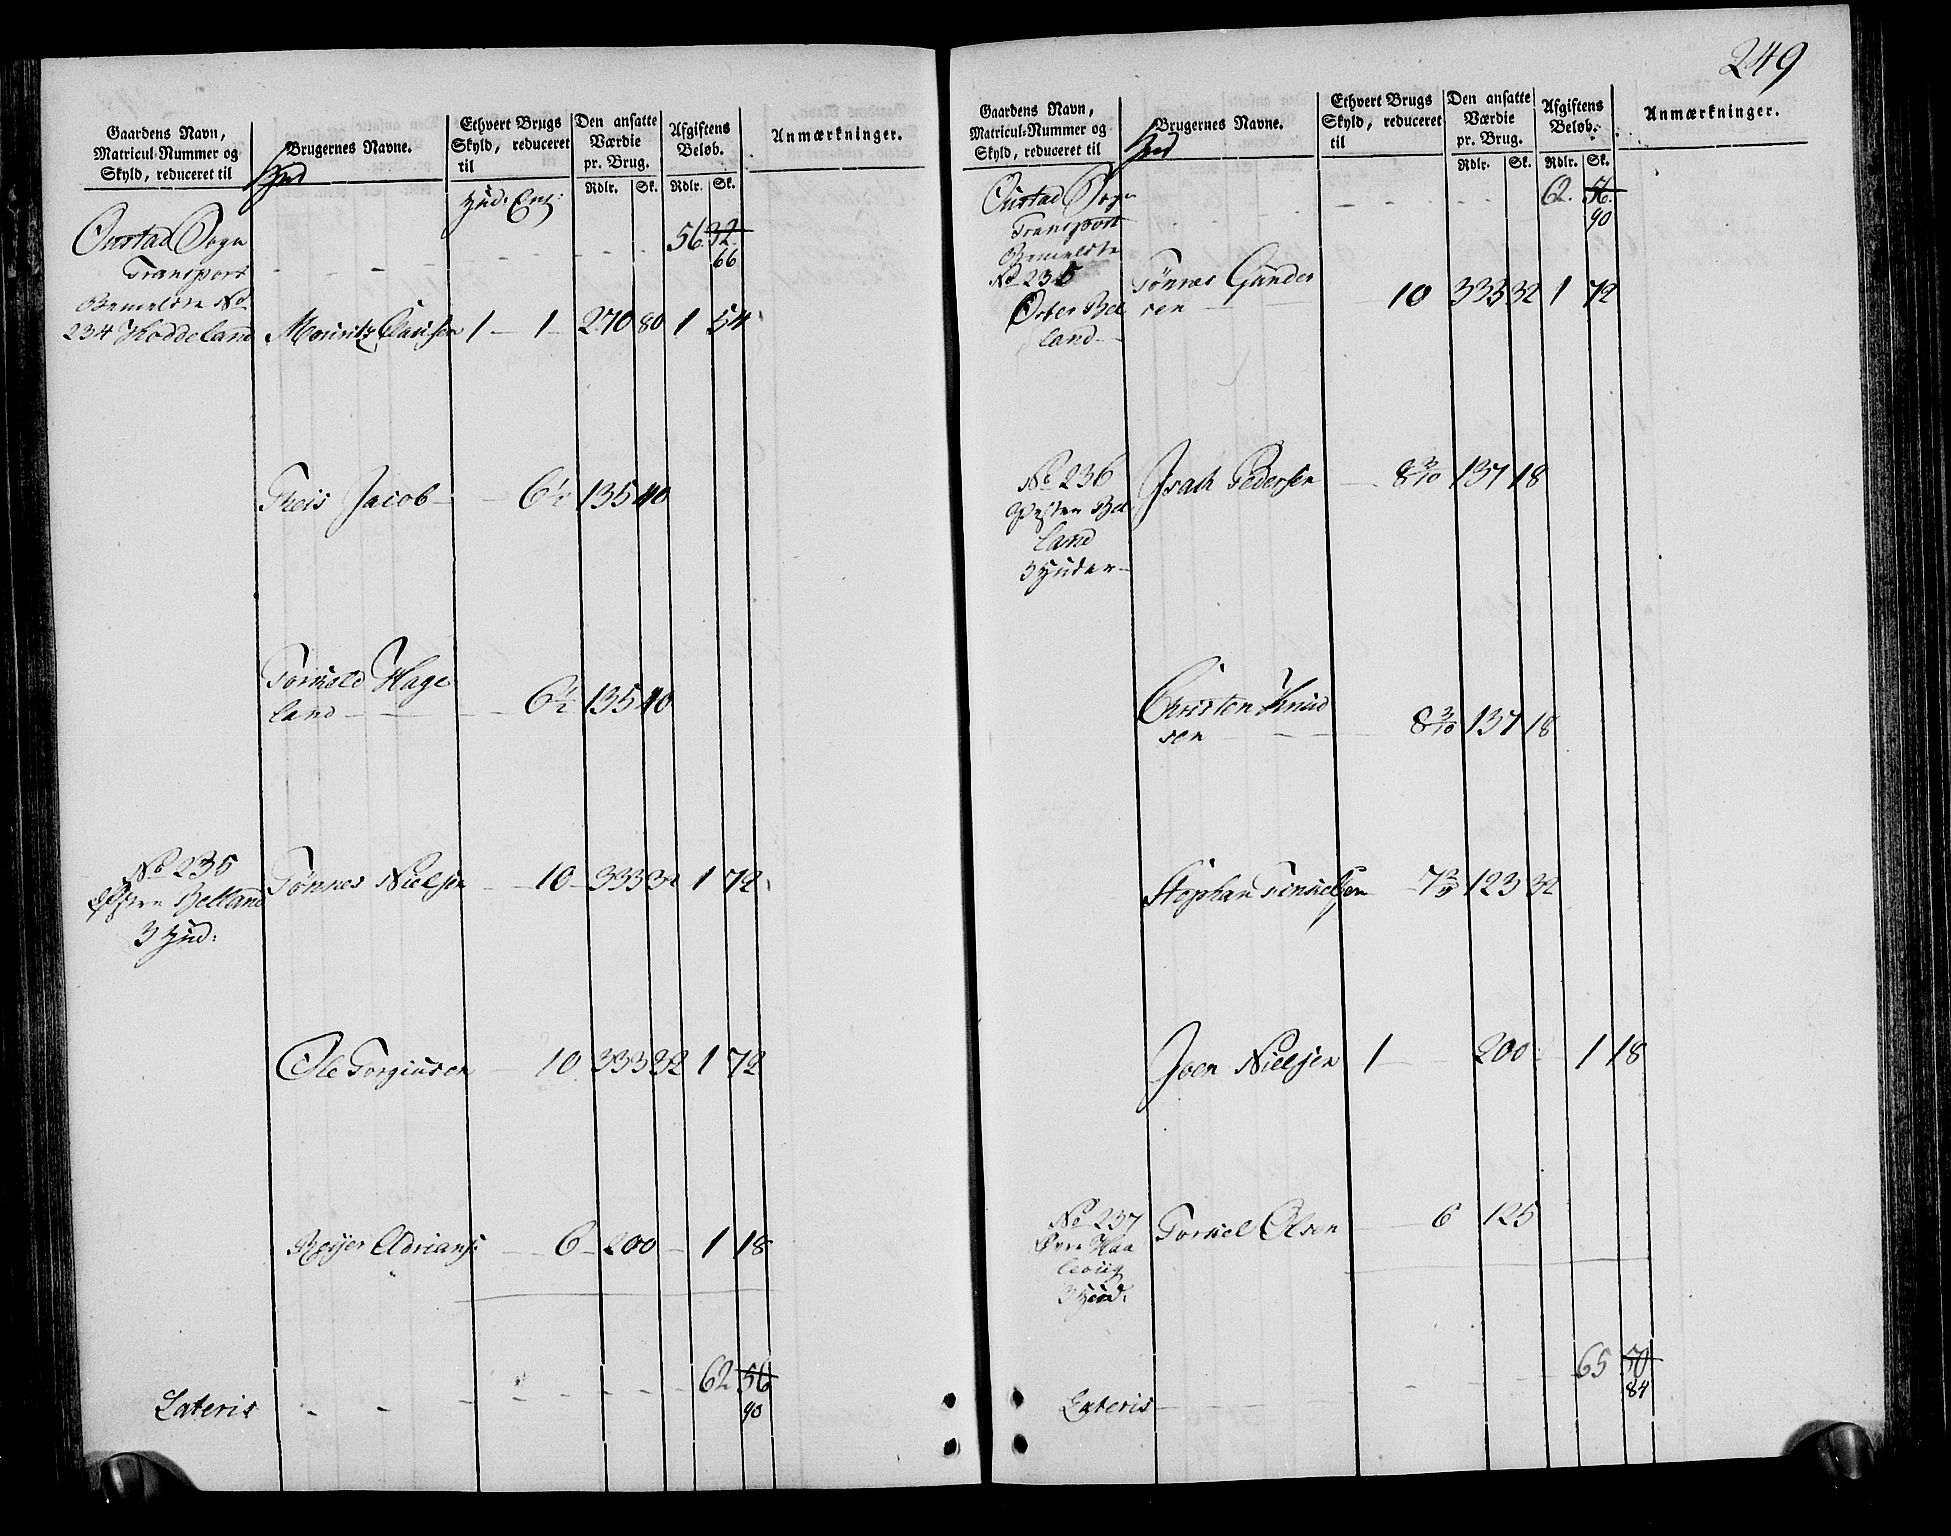 Gaardens Navn,
Matricul-Nummer og
Skyld, reduceret til
Hud
Brugernes Navne.
Ethvert Brugs
Skyld, reduceret
til
Hud. Eng:
Den ansatte
Værdie
pr. Brug.
Rdlr. Sk.
Afgiftens
Beløb.
Rdlr. Sk.
Anmærkninger.
Oustad Sogn
Transport - - - - - - - 56. 32.
66
Bemeldte No
234 Hoddeland Mouritz Clausen 1 - 1 - 270 80 1 54
Theis Jacob - - 6½ 135 40
Torkeld Hage
land - - - 6½ 135 40
No 235
Østre Belland Tønnes Nielsen - 10 - 333 32 1 72
3 Hud:
Ole Torgiusen - 10 333 32 1 72
Reijer Adrians: - 6 - 200 - 1 18
Lateris - - - - - - - - 62 56
90
249
Gaardens Navn,
Matricul-Nummer og
Skyld, reduceret til
Hud
Brugernes Navne.
Ethvert Brugs
Skyld, reduceret
til
Den ansatte
Værdie
pr. Brug.
Rdlr. Sk.
Afgiftens
Beløb.
Rdlr. Sk.
Anmærkninger.
Oustad Sogn
Transport - - - - - - - 62. 56.
90
Bemeldte
No 235 Tønnes Gunder
Øster Bel sen - - 10 333 32 1 72
land -
No 236 Isach Pedersen - 8 3/10 137 18
Vester Bel
land
3 Huder -
Christen Knud
sen - - - - 8 3/10 137 18
Stephan Torkelsen - 7 123 32
Joen Nielsen 1 - 200 - 1 18
No 237 Torkel Olsen - 6 125
3 Hud.
Lateris - - - - - - 65 50
84